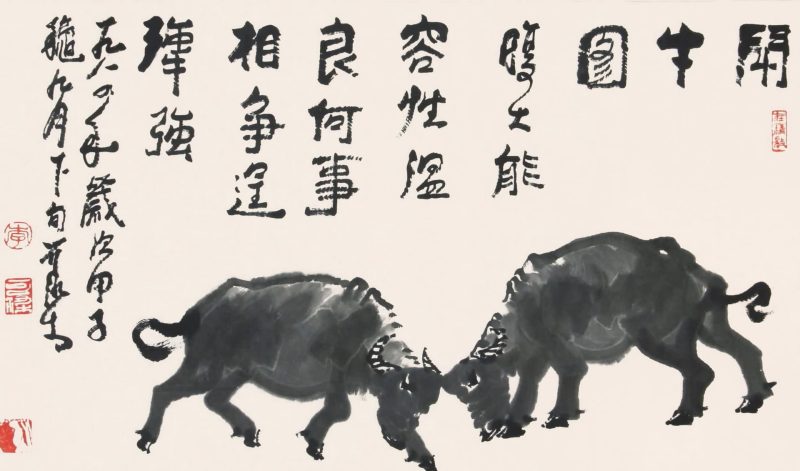 鬥牛圖
腹大能
容性温
良何事
相争逞
強
一九八四年歲次甲子
龝九月下旬
李
可染